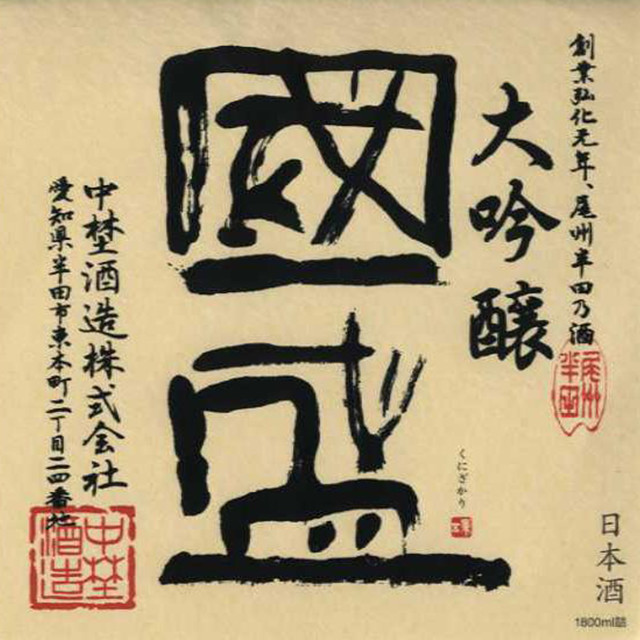 創業弘化元年、尾州半田乃酒
尾州
半田
大吟醸
國盛
くにざかり
中埜酒造株式会社
愛知県半田市東本町二丁目二四番地
中埜
酒造
日本酒
1800ml詰